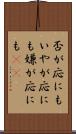 否が応にも
いやが応に
も嫌が応に
も